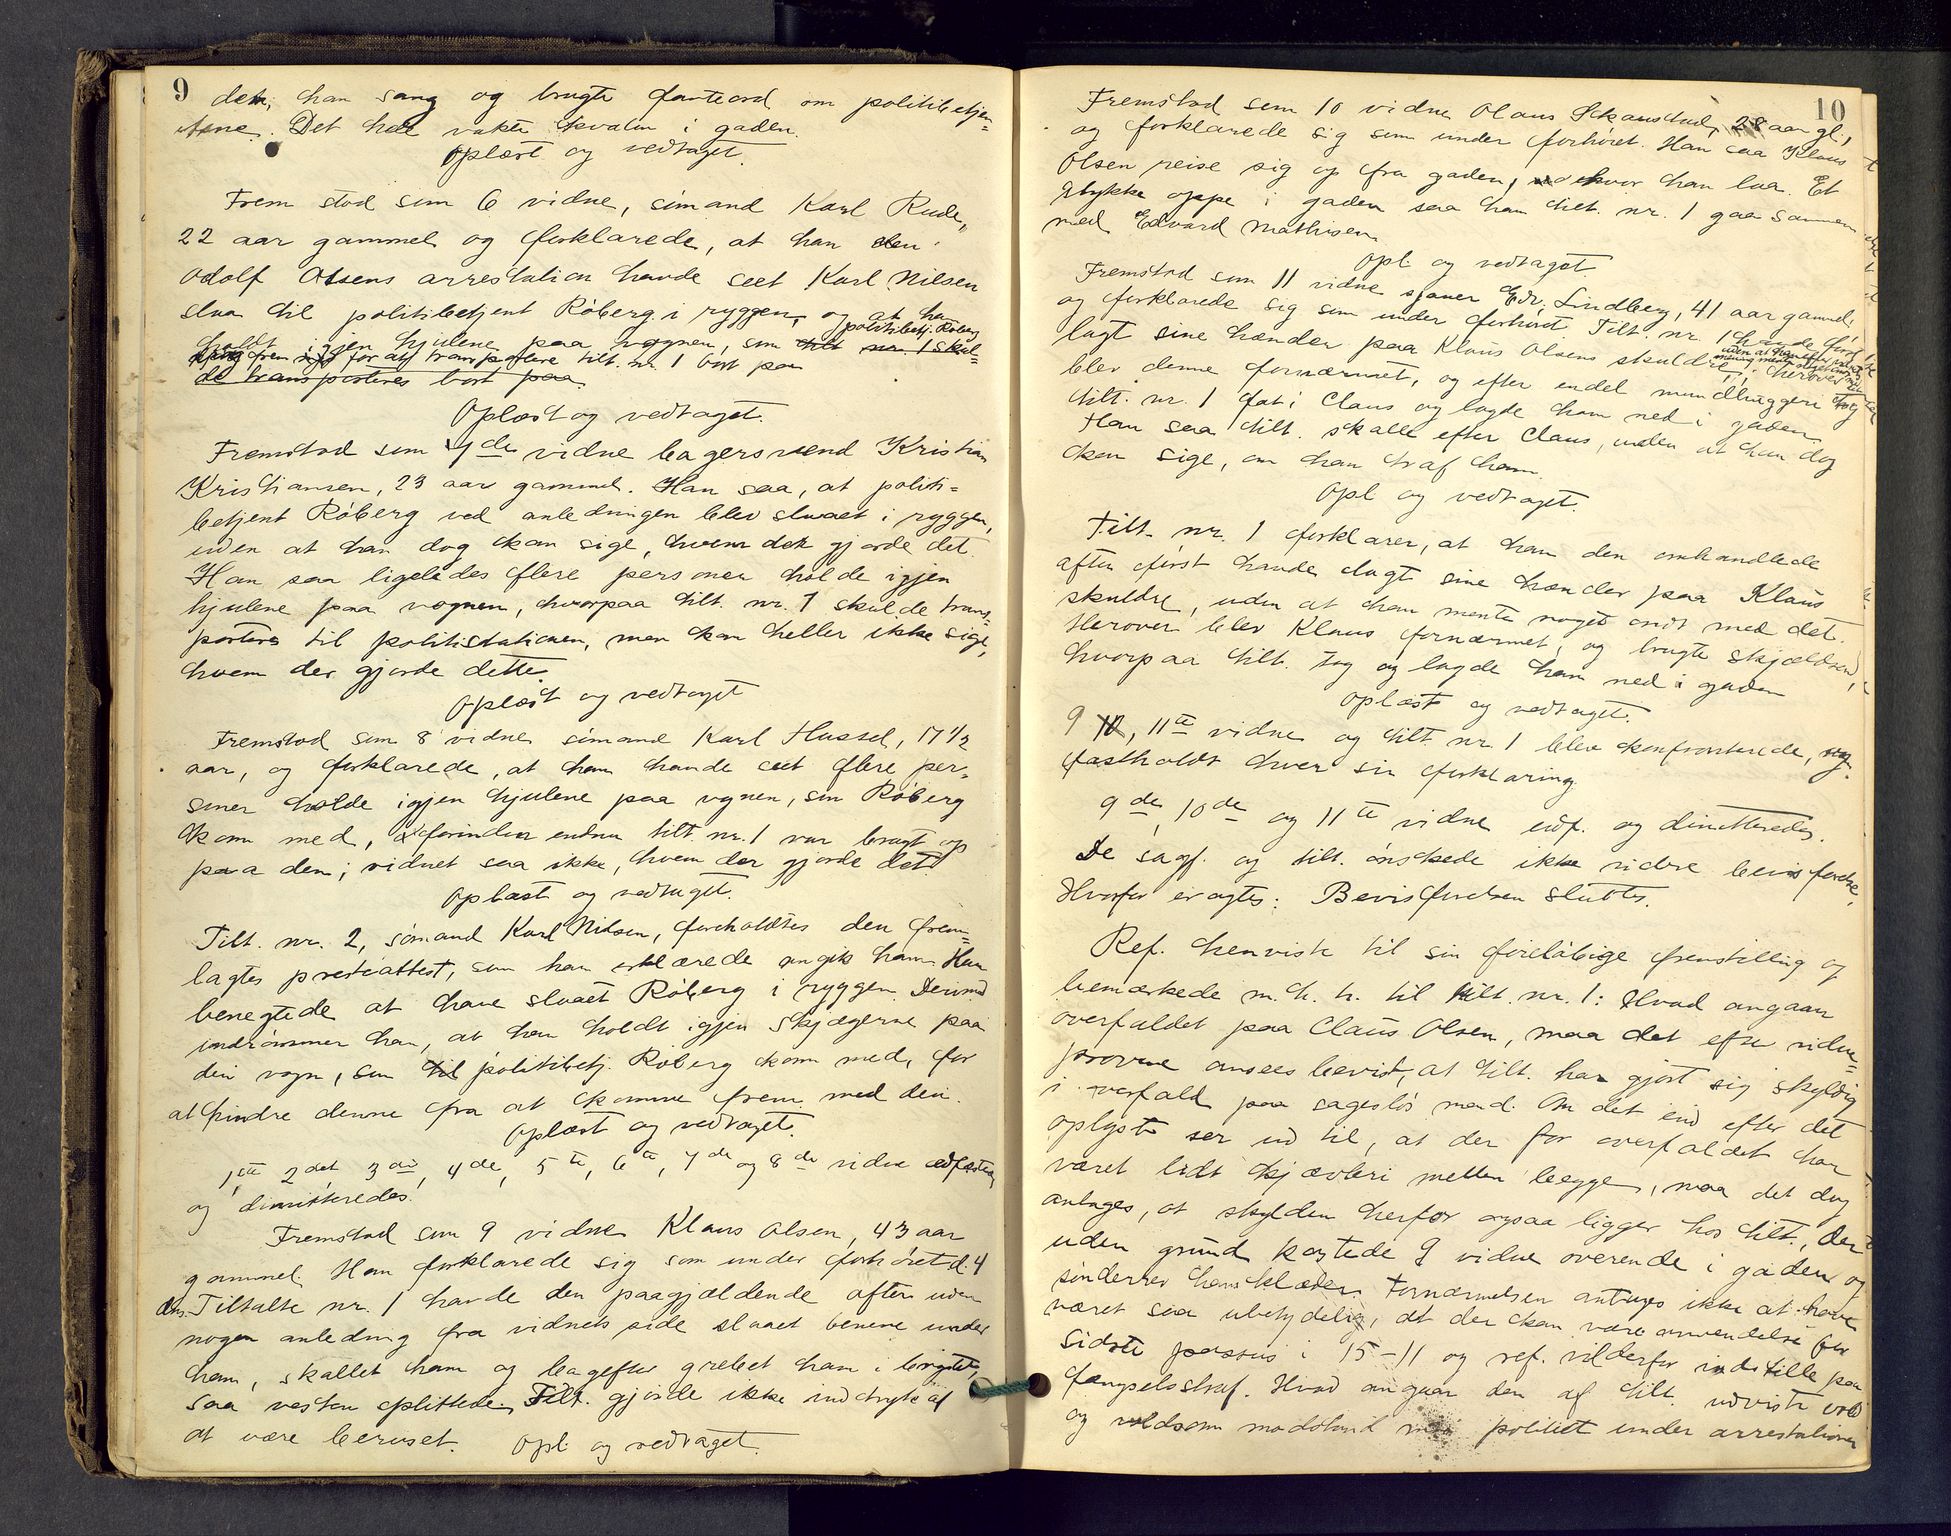 9
dem, han sang og brugte fanteord om politibetjen=
tene. Det hele vakte kvalm i gaden.
Oplæst og vedtaget.
Frem stod som 6 vidne, sömand Karl Rude,
22 aar gammel og forklarede, at han den
Odolf Olsens arrestation havde seet Karl Nilsen
slaa til politibetjent Röberg i ryggen, og at han
politibetj. Röberg
holdt igjen hjulene paa vognen, som tilt nr. 1 skul=
frem for at transportere tilt. nr. 1 bort paa
de transporteres bort paa
Oplæst og vedtaget.
Fremstod som 7de vidne bagersvend Kristian
Kristiansen, 23 aar gammel. Han saa, at politi=
betjent Röberg ved anledningen blev slaaet i ryggen,
uden at han dog kan sige, hvem der gjorde det.
Han saa ligeledes flere personer holde igjen
hjulene paa vognen, hvorpaa tilt. nr. 1 skulde trans=
porteres til politistationen, men kan heller ikke sige,
hvem der gjorde dette.
Oplæst og vedtaget
Fremstod som 8 vidne sömand Karl Hassel, 17 1/2
aar, og forklarede, at han havde seet flere per=
soner holde igjen hjulene paa vognen, som Röberg
kom med, forinden endnu tilt. nr. 1 var bragt op
paa den; vidnet saa ikke, hvem der gjorde det
Oplæst og vedtaget.
Tilt. nr. 2, sömand Karl Nilsen, foreholdtes den frem=
lagte presteattest, som han erklærede angik ham. Han
benegtede at have slaaet Röberg i ryggen. Derimod
indrömmer han, at han holdt igjen skjægerne paa
den vogn, som til politibetj. Röberg kom med, for
at hindre denne fra at komme frem med den.
Oplæst og vedtaget.
1ste, 2det, 3die, 4de, 5te, 6te, 7de og 8de vidne edfæstedes
og dimitteredes.
Fremstod som 9 vidne Klaus Olsen, 43 aar
gammel. Han forklarede sig som under forhöret d. 4
ds. Tiltalte nr. 1 havde den paagjældende aften uden
nogen anledning fra vidnets side slaaet benene under
ham, skallet ham og bagefter grebet ham i brystet,
saa vesten splittedes. Tilt. gjorde ikke indtryk af
at være beruset. Opl. og vedtaget.
10
Fremstod som 10 vidne Olaus Skaustad, 28 aar gl.,
og forklarede sig som under forhöret. Han saa Klaus
Olsen reise sig op fra gaden, hvor han laa. Et
stykke oppe i gaden saa han tilt. nr. 1 gaa sammen
med Edvard Mathisen.
Opl. og vedtaget.
Fremstod som 11 vidne sjauer Edv. Lindberg, 41 aar gammel,
og forklarede sig som under forhöret. Tilt. nr. 1 havde först
lagt sine hænder paa Klaus Olsens skuldre, herover
uden at han efter vidnets
mening mente noget ondt med det
blev denne fornærmet, og efter endel mundhuggeri tog
tilt. nr. 1 fat i Claus og lagde ham ned i gaden.
Han saa tilt. skalle efter Claus, uden at han dog
kan sige, om han traf ham.
Opl og vedtaget.
Tilt. nr. 1 forklarer, at han den omhandlede
aften först havde lagt sine hænder paa Klaus
skuldre, uden at han mente noget ondt med det.
Herover blev Klaus fornærmet, og brugte skjældsord,
hvorpaa tilt. tog og lagde ham ned i gaden
Oplæst og vedtaget.
9 10, 11te vidne og tilt nr. 1 blev konfronterede, og
fastholdt hver sin forklaring.
9de, 10de og 11te vidne edf. og dimitteredes.
De sagf. og tilt. önskede ikke videre bevisförelse,
Hvorfor eragtes: Bevisförelsen sluttes.
Ref. henviste til sin foreløbige fremstilling og
bemærkede m. h. t. til tilt. nr. 1: Hvad angaar
overfaldet paa Claus Olsen, maa det efter vidne=
provene ansees bevist, at tilt. har gjort sig skyldig
i overfald paa sageslös mand. Om det end efter det
oplyste ser ud til, at der för overfaldet har
været lidt kjævleri mellem begge, maa det dog
antages, at skylden herfor ogsaa ligger hos tilt., der
uden grund kastede 9 vidne overende i gaden og
sönderrev hans klæder. Fornærmelsen antages ikke at have
været saa ubetydelig, at der kan være anvendelse for
sidste passus i 15-11 og ref. vil derfor indstille paa
fængselsstraf. Hvad angaar den af tilt. udviste vold
og voldsom modstand mod politiet under arrestationen